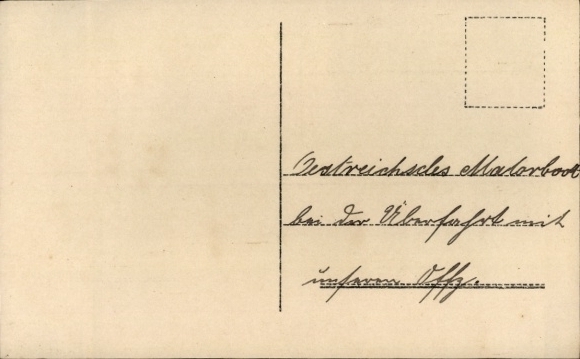 Oestreichsches Motorboot
bei der Überfahrt mit
unseren Offz.